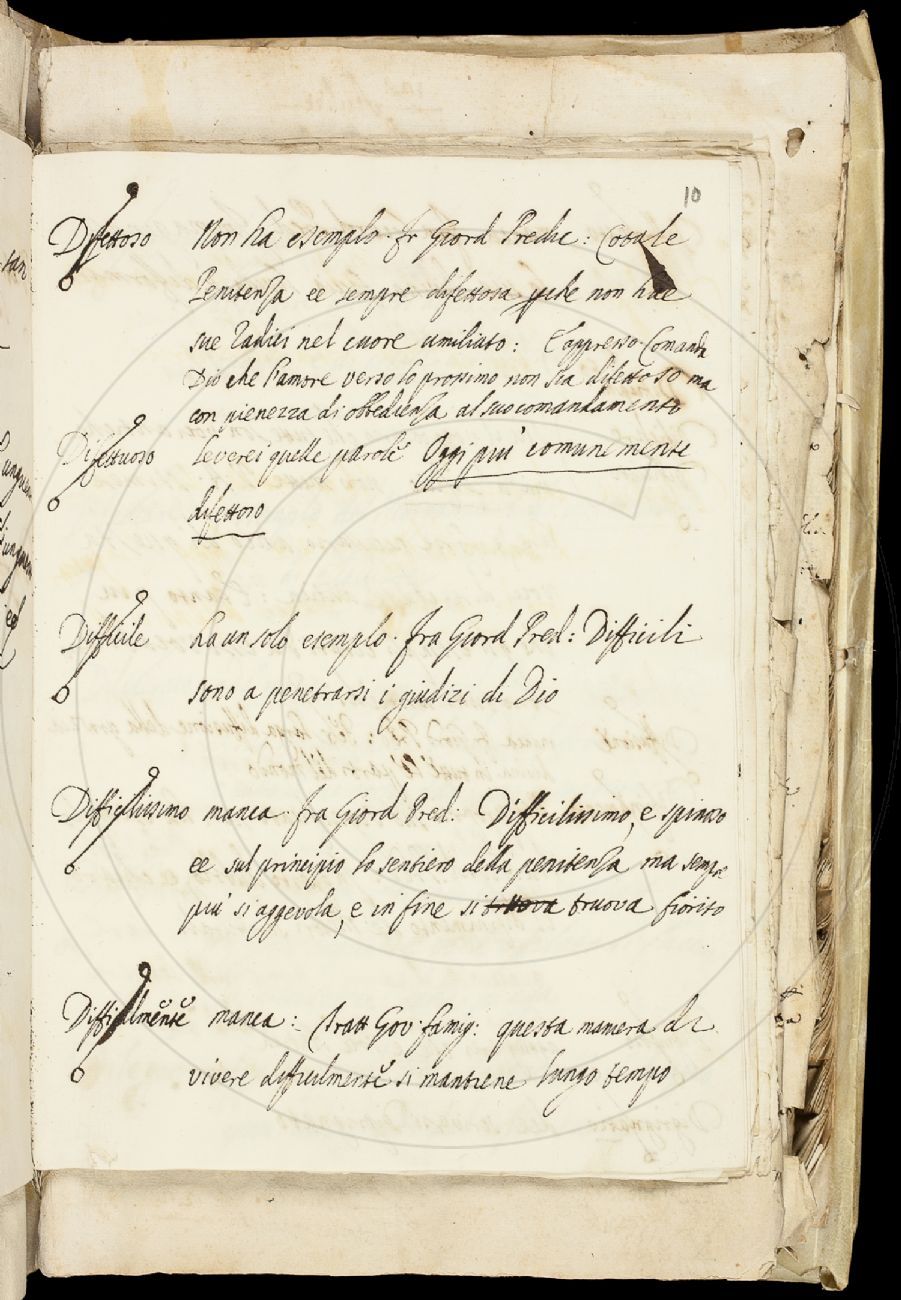 10
Difettoso Non ha esemplo. fr Giord Predic: Cotale
Penitenza ee sempre difettosa perche non hae
sue radici nel cuore umiliato: E appresso. Comanda
Dio che l'amore verso lo prossimo non sia difettoso ma
con pienezza di obbedienza al suo comandamento
Difettuoso Leverei quelle parole Oggi piu comunemente
difettoso
Difficile ha un solo esemplo. fra Giord Pred: Difficili
sono a penetrarsi i giudizi di Dio
Difficilissimo manca. fra Giord Pred: Difficilissimo, e spinoso
ee sul principio lo sentiero della penitenza ma sempre
piu si aggevola, e in fine si truova truova fiorito
Difficilmente manca: Tratt Gov. famig: questa maniera di
vivere difficilmente si mantiene lungo tempo